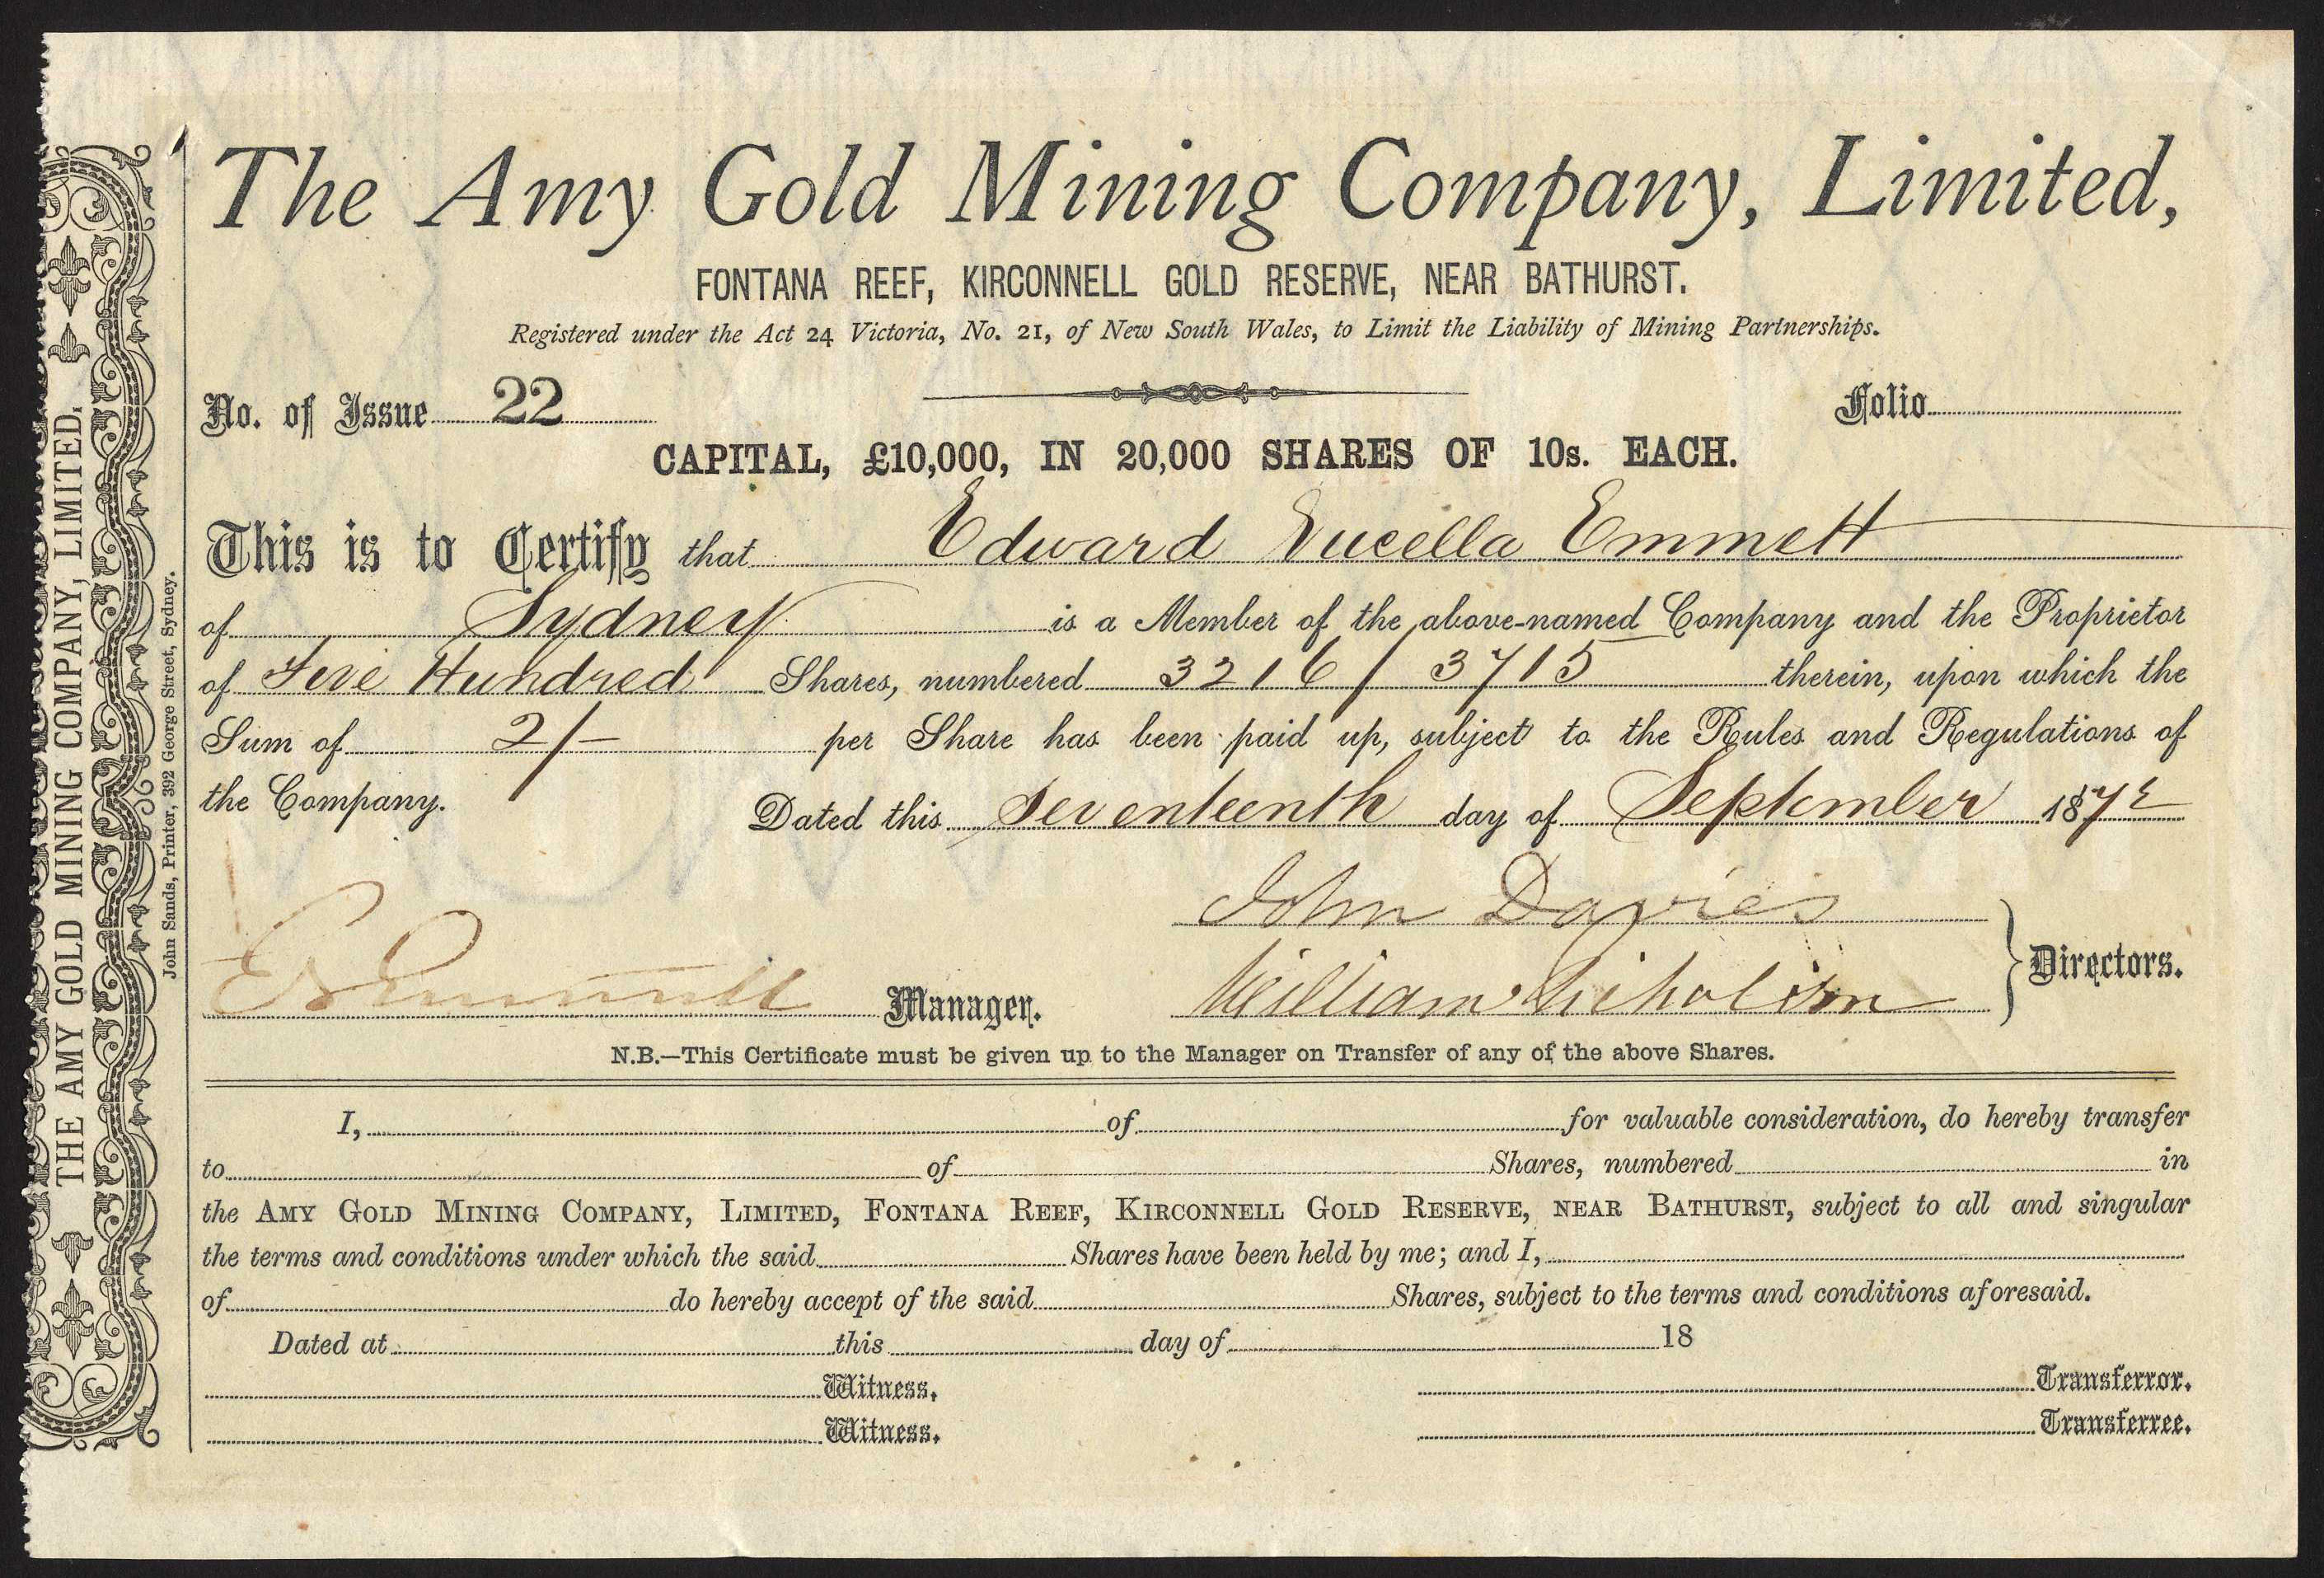 The Amy Gold Mining Company, Limited,
FONTANA REEF, KIRCONNELL GOLD RESERVE, NEAR BATHURST.
Registered under the Act 24 Victoria, No. 21, of New South Wales, to Limit the Liability of Mining Partnerships.
No. of Issue 22
Folio
CAPITAL, £10,000, IN 20,000 SHARES OF 10s. EACH.
This is to Certify that Edward Emmett
of Sydney is a Member of the above-named Company and the Proprietor
of Five Hundred Shares, numbered 3216/3715 therein, upon which the
Sum of 2/- per Share has been paid up, subject to the Rules and Regulations of
the Company. Dated this Seventeenth day of September 1872
John Davies
William Nicholson
Directors.
Emmett Manager.
N.B.—This Certificate must be given up to the Manager on Transfer of any of the above Shares.
I, of for valuable consideration, do hereby transfer
to of Shares, numbered in
the AMY GOLD MINING COMPANY, LIMITED, FONTANA REEF, KIRCONNELL GOLD RESERVE, NEAR BATHURST, subject to all and singular
the terms and conditions under which the said Shares have been held by me; and I,
of do hereby accept of the said Shares, subject to the terms and conditions aforesaid.
Dated at this day of 18
Witness. Transferror.
Witness. Transferree.
THE AMY GOLD MINING COMPANY, LIMITED.
John Sands, Printer, 392 George Street, Sydney.